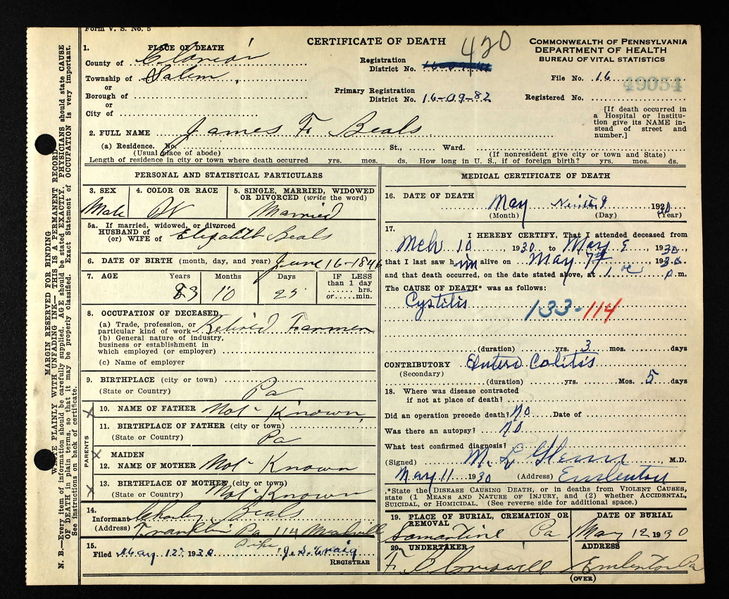 Form V. S. No. 5
CERTIFICATE OF DEATH
420
COMMONWEALTH OF PENNSYLVANIA
DEPARTMENT OF HEALTH
BUREAU OF VITAL STATISTICS
1. PLACE OF DEATH
County of Clarion
Township of Salem,
or
Borough of
or
City of
Registration
District No.
Primary Registration
District No. 16-09-82
File No. 16
49054
Registered No.
[If death occurred in
a Hospital or Institu-
tion give its NAME in-
stead of street and
number.]
2. FULL NAME James F. Beals
(a) Residence. No. St., Ward.
(Usual place of abode) (If nonresident give city or town and State)
Length of residence in city or town where death occurred yrs. mos. ds. How long in U. S., if of foreign birth? yrs. mos. ds.
PERSONAL AND STATISTICAL PARTICULARS
3. SEX
Male
4. COLOR OR RACE
W
5. SINGLE, MARRIED, WIDOWED
OR DIVORCED (write the word)
Married
5a. If married, widowed, or divorced
HUSBAND of
(or) WIFE of Elizabeth Beals
6. DATE OF BIRTH (month, day, and year) June 16-1846
7. AGE Years Months Days IF LESS
than 1 day
hrs.
or min.
83 10 23
8. OCCUPATION OF DECEASED
(a) Trade, profession, or
particular kind of work Retired Farmer
(b) General nature of industry,
business or establishment in
which employed (or employer)
(c) Name of employer
9. BIRTHPLACE (city or town)
(State or Country) Pa
PARENTS
10. NAME OF FATHER Not Known
11. BIRTHPLACE OF FATHER (city or town)
(State or Country) Pa
12. MAIDEN NAME OF MOTHER Not Known
13. BIRTHPLACE OF MOTHER (city or town)
(State or Country) Not Known
14. Informant Charley Beals
(Address) Franklin Pa 114 Meadville
Pike
15. Filed May 12 1930 REGISTRAR
MEDICAL CERTIFICATE OF DEATH
16. DATE OF DEATH May 9 1930
(Month) (Day) (Year)
17. I HEREBY CERTIFY, That I attended deceased from
Mch 10 1930 to May 1930
that I last saw him alive on May 7th 1930
and that death occurred, on the date stated above, at 1 P.m.
The CAUSE OF DEATH* was as follows:
Cystitis
133-114
(duration) yrs. 3 mos. days
CONTRIBUTORY Entero Colitis
(Secondary)
(duration) yrs. Mos. 5 days
18. Where was disease contracted
if not at place of death?
Did an operation precede death? No Date of
Was there an autopsy? No
What test confirmed diagnosis?
(Signed) M.D.
May 11 1930 (Address) Emlenton
*State the DISEASE CAUSING DEATH, or in death from VIOLENT CAUSES,
state (1) MEANS AND NATURE OF INJURY, and (2) whether ACCIDENTAL,
SUICIDAL, or HOMICIDAL. (See reverse side for additional space.)
19. PLACE OF BURIAL, CREMATION OR
REMOVAL
Pa
DATE OF BURIAL
May 12 1930
20. UNDERTAKER
ADDRESS
Emlenton Pa
(OVER)
MARGIN RESERVED FOR BINDING
WRITE PLAINLY WITH UNFADING INK—THIS IS A PERMANENT RECORD
N. B.—Every item of information should be carefully supplied. AGE should be stated EXACTLY. PHYSICIANS should state CAUSE
OF DEATH in plain terms, so that it may be properly classified. Exact Statement of OCCUPATION is very important.
See instructions on back of certificate.